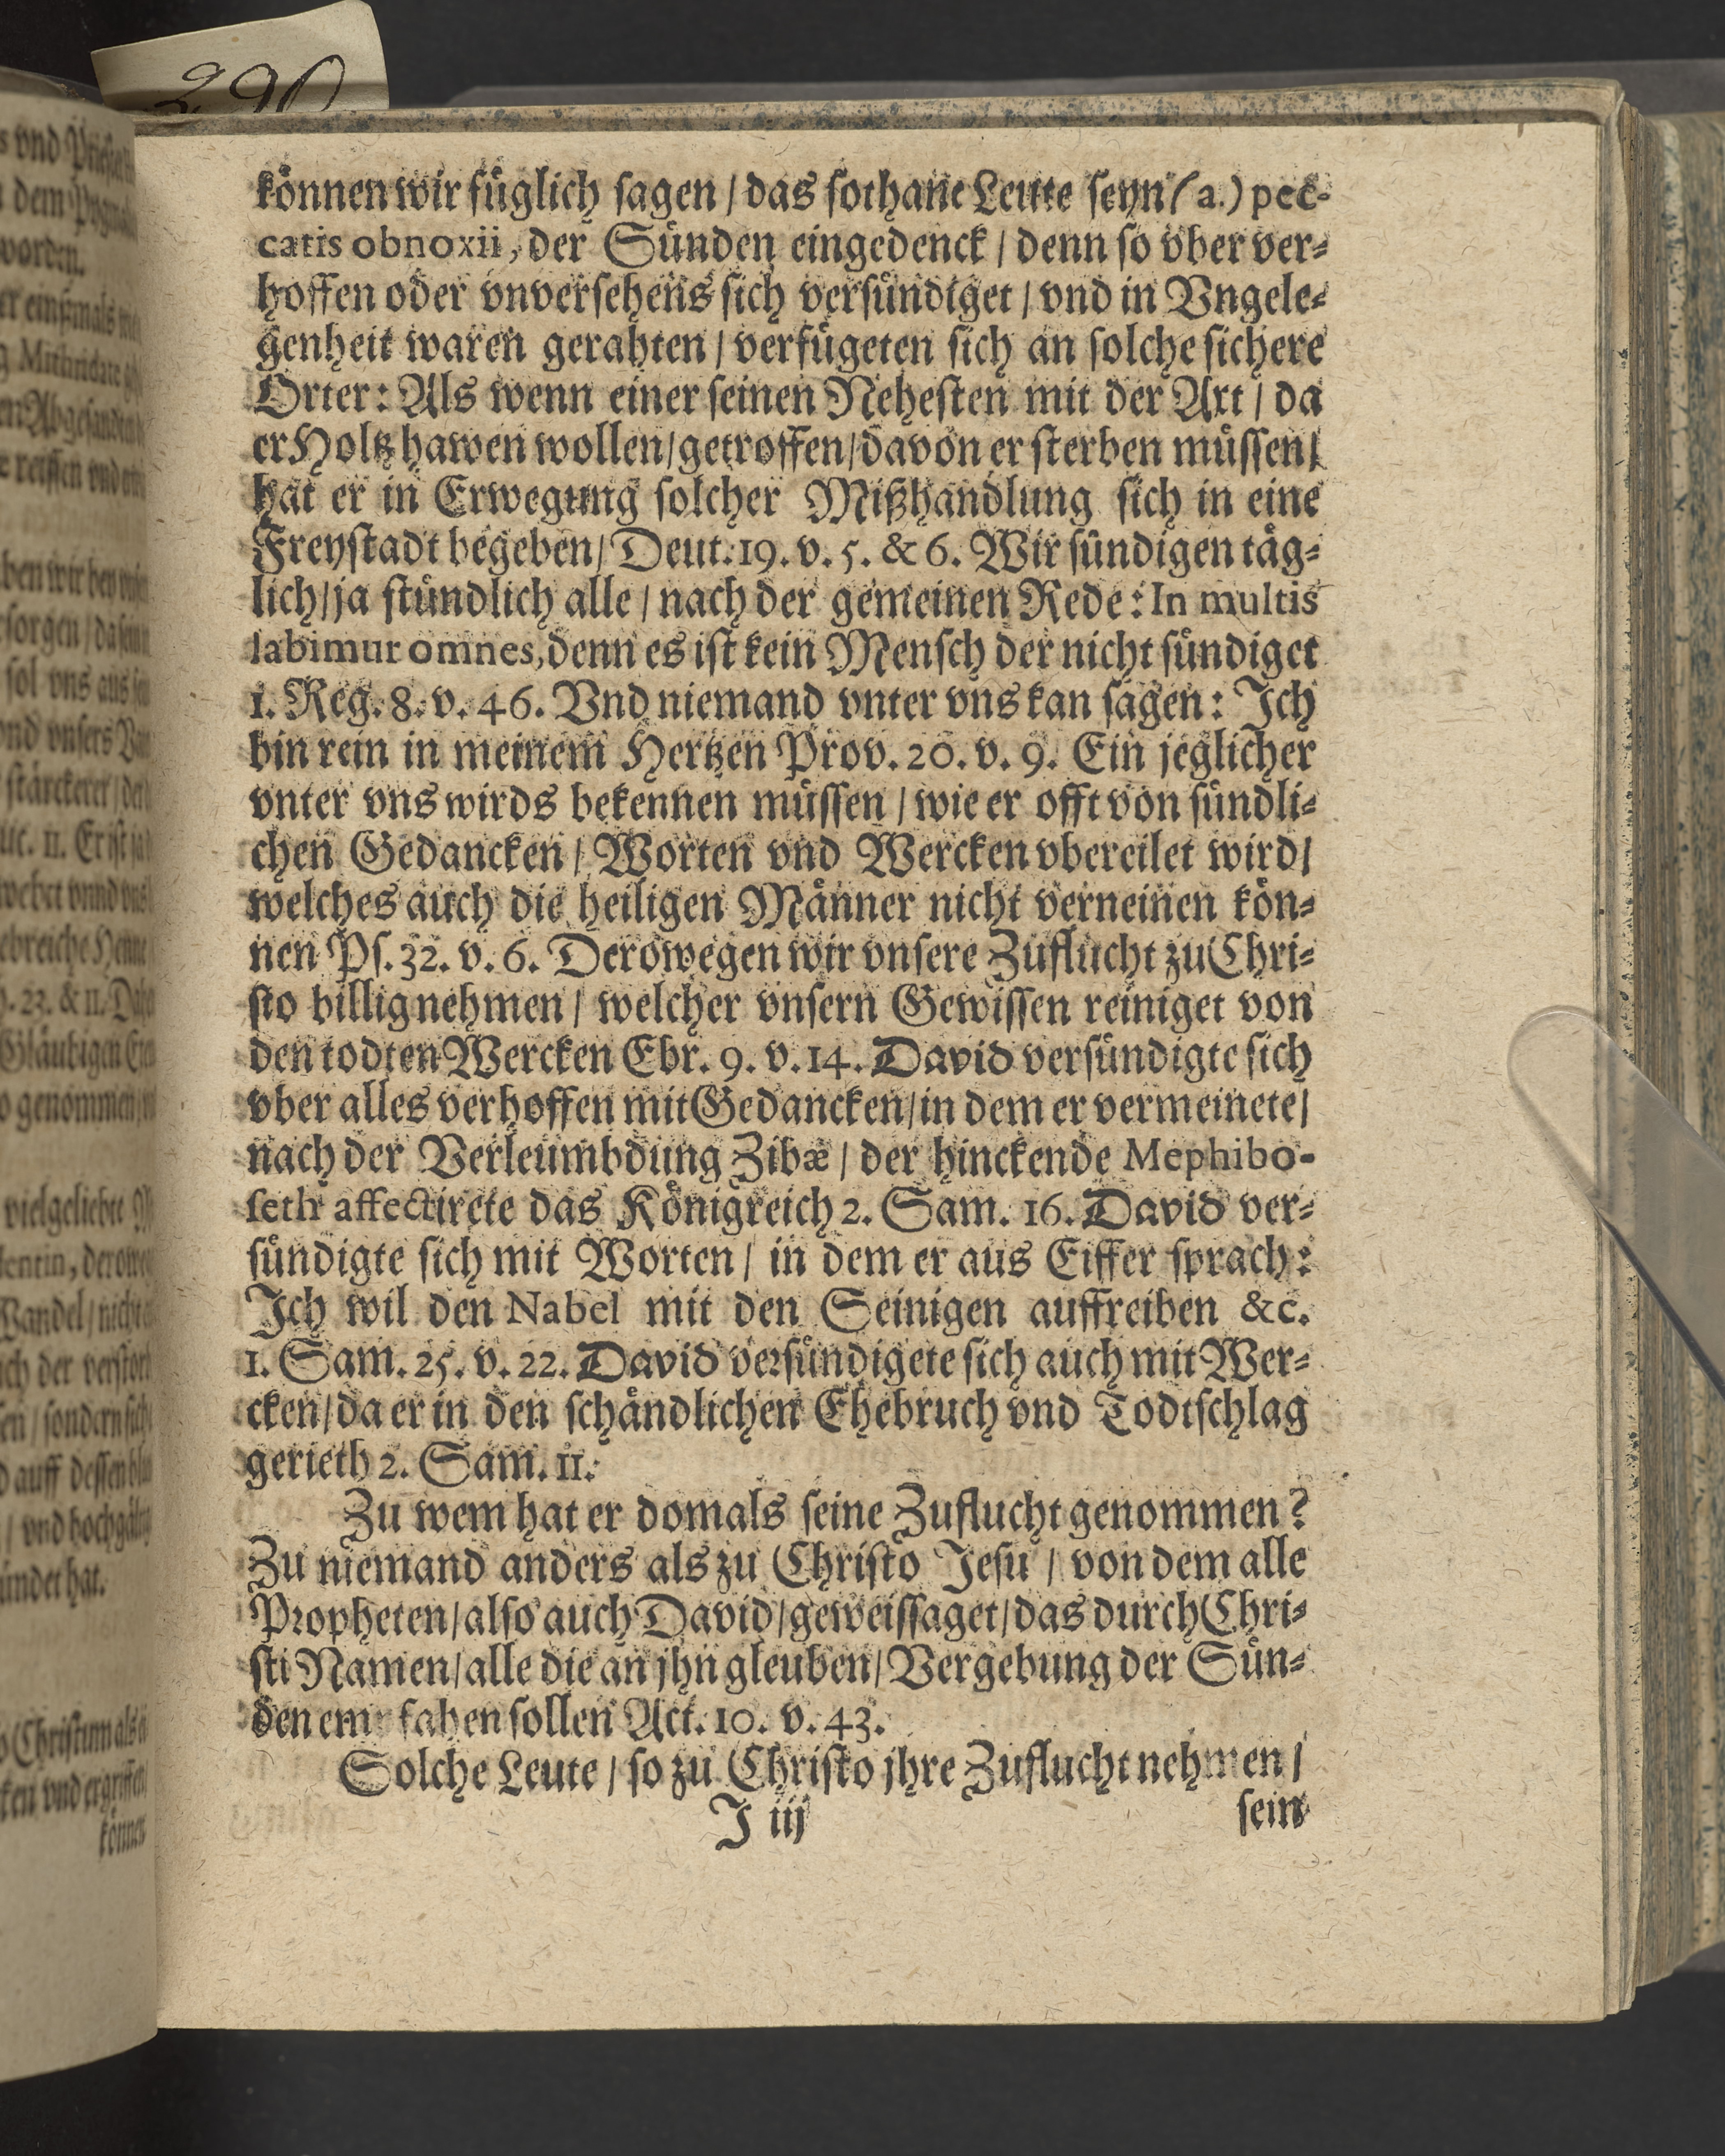 290
können wir füglich sagen / das sothane Leute seyn (a.) pec-
catis obnoxii, der Sünden eingedenck / denn so vber ver-
hoffen oder vnversehens sich versündiget / vnd in Vngele-
genheit waren gerahten / verfügeten sich an solche sichere
Orter: Als wenn einer seinen Nehesten mit der Axt / da
er Holtz hawen wollen / getroffen / davon er sterben müssen /
hat er in Erwegung solcher Mißhandlung sich in eine
Freystadt begeben / Deut. 19. v. 5. & 6. Wir sündigen täg-
lich / ja stündlich alle / nach der gemeinen Rede: In multis
labimur omnes, denn es ist kein Mensch der nicht sündiget
1. Reg. 8. v. 46. Vnd niemand vnter vns kan sagen: Ich
bin rein in meinem Hertzen Prov. 20. v. 9. Ein jeglicher
vnter vns wirds bekennen müssen / wie er offt von sündli-
chen Gedancken / Worten vnd Wercken vbereilet wird /
welches auch die heiligen Männer nicht verneinen kön-
nen Ps. 32. v. 6. Derowegen wir vnsere Zuflucht zu Chri-
sto billig nehmen / welcher vnsern Gewissen reiniget von
den todten Wercken Ebr. 9. v. 14. David versündigte sich
vber alles verhoffen mit Gedancken / in dem er vermeinete /
nach der Verleumbdung Zibæ / der hinckende Mephibo-
seth affectirete das Königreich 2. Sam. 16. David ver-
sündigte sich mit Worten / in dem er aus Eiffer sprach:
Ich wil den Nabel mit den Seinigen auffreiben &c.
1. Sam. 25. v. 22. David versündigete sich auch mit Wer-
cken / da er in den schändlichen Ehebruch vnd Todtschlag
gerieth 2. Sam. 11.
Zu wem hat er domals seine Zuflucht genommen?
Zu niemand anders als zu Christo Jesu / von dem alle
Propheten / also auch David / geweissaget / das durch Chri-
sti Namen / alle die an jhn gleuben / Vergebung der Sün-
den empfahen sollen Act. 10. v. 43.
Solche Leute / so zu Christo jhre Zuflucht nehmen /
J iij sein